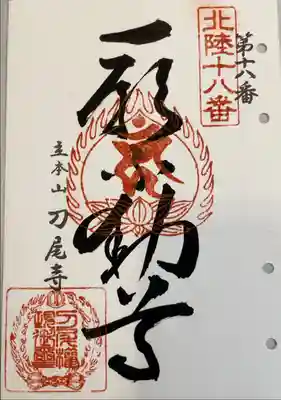 第十八番
北陸十八番
一願不動尊
立本山 刀尾寺